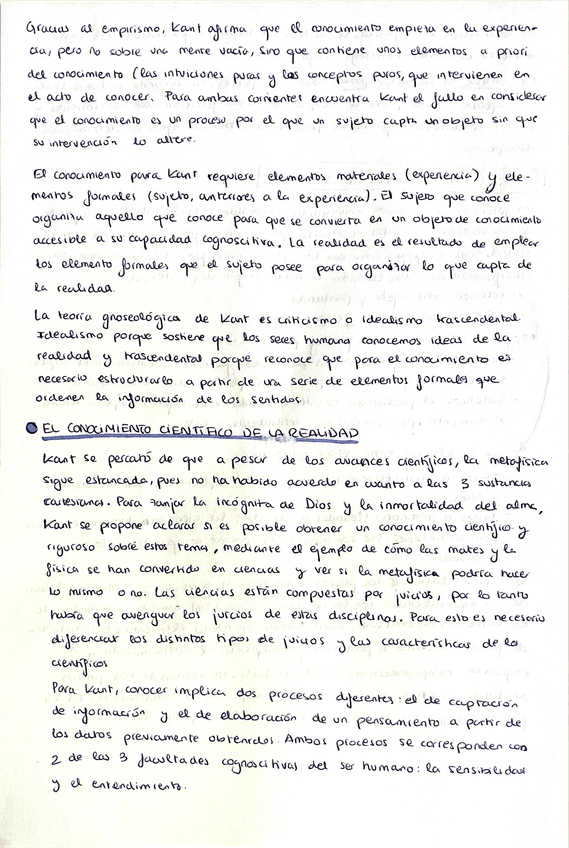 Gracias al empirismo, Kant afirma que el conocimiento empieza en la experien-
cia, pero no sobre una mente vacía, sino que contiene unos elementos a priori
del conocimiento (las intuiciones puras y los conceptos puros, que intervienen en
el acto de conocer. Para ambas corrientes encuentra Kant el fallo en considerar
que el conocimiento es un proceso por el que un sujeto capta un objeto sin que
su intervención lo altere.
El conocimiento para Kant requiere elementos materiales (experiencia) y ele-
mentos formales (sujeto, anteriores a la experiencia). El sujeto que conoce
organiza aquello que conoce para que se convierta en un objeto de conocimiento
accesible a su capacidad cognoscitiva. La realidad es el resultado de emplear
los elemento formales que el sujeto posee para organizar lo que capta de
la realidad.
La teoría gnoseológica de Kant es criticismo o idealismo trascendental.
Idealismo porque sostiene que los seres humana conocemos ideas de la
realidad y trascendental porque reconoce que para el conocimiento es
necesario estructurarlo a partir de una serie de elementos formales que
ordenen la información de los sentidos.
EL CONOCIMIENTO CIENTÍFICO DE LA REALIDAD
Kant se percató de que a pesar de los avances científicos, la metafísica
sigue estancada, pues no ha habido acuerdo en cuanto a las 3 sustancias
cartesianas. Para zanjar la incógnita de Dios y la inmortalidad del alma,
Kant se propone aclarar si es posible obtener un conocimiento científico y
riguroso sobre estos temas, mediante el ejemplo de cómo las mates y la
física se han convertido en ciencias y ver si la metafísica podría hacer
lo mismo o no. Las ciencias están compuestas por juicios, por lo tanto
habría que averiguar los juicios de estas disciplinas. Para esto es necesario
diferenciar los distintos tipos de juicios y las características de los
científicos
Para Kant, conocer implica dos procesos diferentes: el de captación
de información y el de elaboración de un pensamiento a partir de
los datos previamente obtenidos. Ambos procesos se corresponden con
2 de las 3 facultades cognoscitivas del ser humano: la sensibilidad
y el entendimiento.